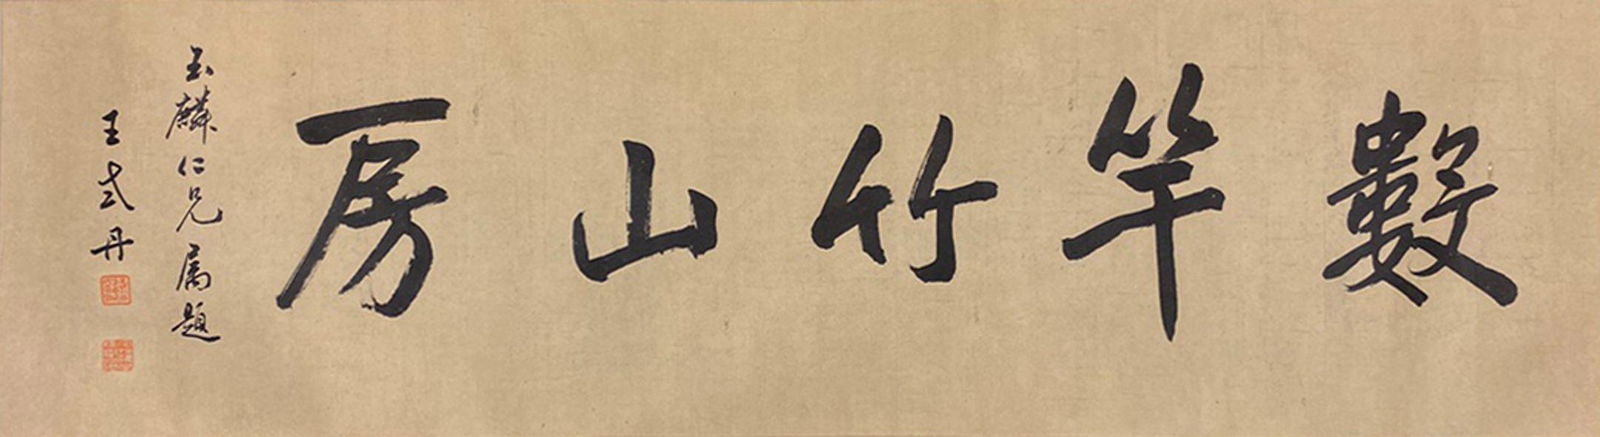 數竿竹山房
玉麟仁兄屬題
王式丹